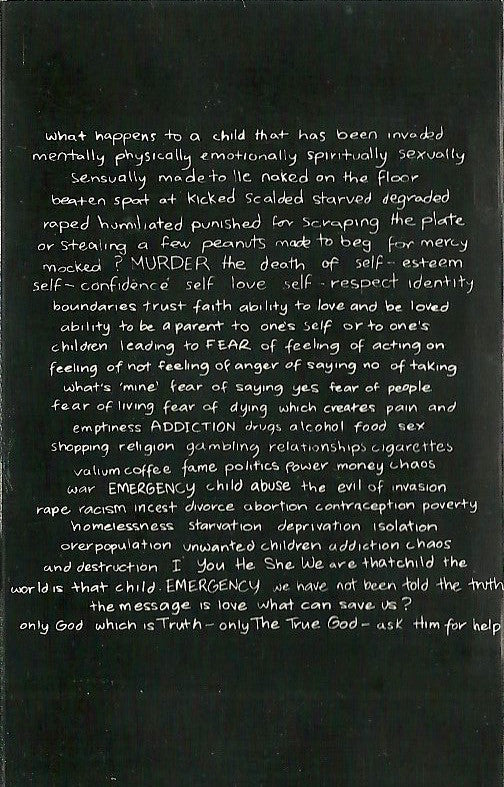 what happens to a child that has been invaded
mentally physically emotionally spiritually sexually
sensually made to lie naked on the floor
beaten spat at kicked scalded starved degraded
raped humiliated punished for scraping the plate
or stealing a few peanuts made to beg for mercy
mocked? MURDER the death of self-esteem
self-confidence self love self-respect identity
boundaries trust faith ability to love and be loved
ability to be a parent to one's self or to one's
children leading to FEAR of feeling of acting on
feeling of not feeling of anger of saying no of taking
what's 'mine' fear of saying yes fear of people
fear of living fear of dying which creates pain and
emptiness ADDICTION drugs alcohol food sex
shopping religion gambling relationships cigarettes
valium coffee fame politics power money chaos
war EMERGENCY child abuse the evil of invasion
rape racism incest divorce abortion contraception poverty
homelessness starvation deprivation isolation
overpopulation unwanted children addiction chaos
and destruction I You He She We are that child the
world is that child. EMERGENCY we have not been told the truth
the message is love what can save us?
only God which is Truth - only The True God - ask Him for help